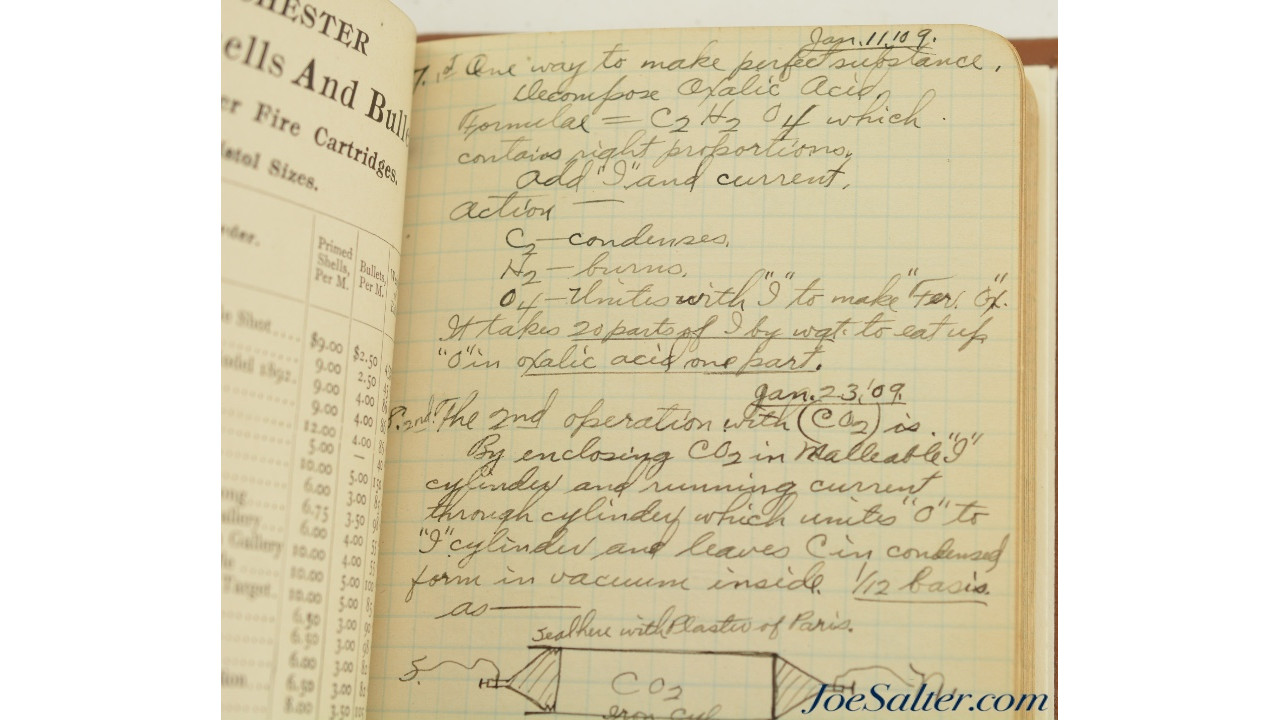 CHESTER
ells And Bull
er Fire Cartridges.
istol Sizes.
Primed Shells, Per M.
Bullets, Per M.
Shot
$9.00 $2.50
1892.
9.00 2.50
9.00 4.00
9.00 4.00
12.00 4.00
5.00 —
10.00 5.00
6.00 3.00
6.75 3.50
Gallery
6.00 4.00
10.00 4.00
10.00 5.00
Target.
10.00 5.00
6.50 3.00
6.50 3.00
6.00 3.00
6.50 3.00
8.00 3.50
Jan. 11, '09.
7. 1st One way to make perfect substance.
Decompose Oxalic Acid.
Formulae = C2 H2 O4 which
contains right proportions.
Add "I" and current.
Action —
C2 — condenses.
H2 — burns.
O4 — Unites with "I" to make "Fer. Ox."
It takes 20 parts of I by wgt. to eat up
"O" in oxalic acid one part.
Jan. 23, '09.
8. 2nd. The 2nd operation with (CO2) is.
By enclosing CO2 in Malleable "I"
cylinder and running current
through cylinder which unites "O" to
"I" cylinder and leaves C in condensed
form in vacuum inside. 1/12 basis.
as ——
Seal here with Plaster of Paris.
CO2
Iron Cyl
JoeSalter.com